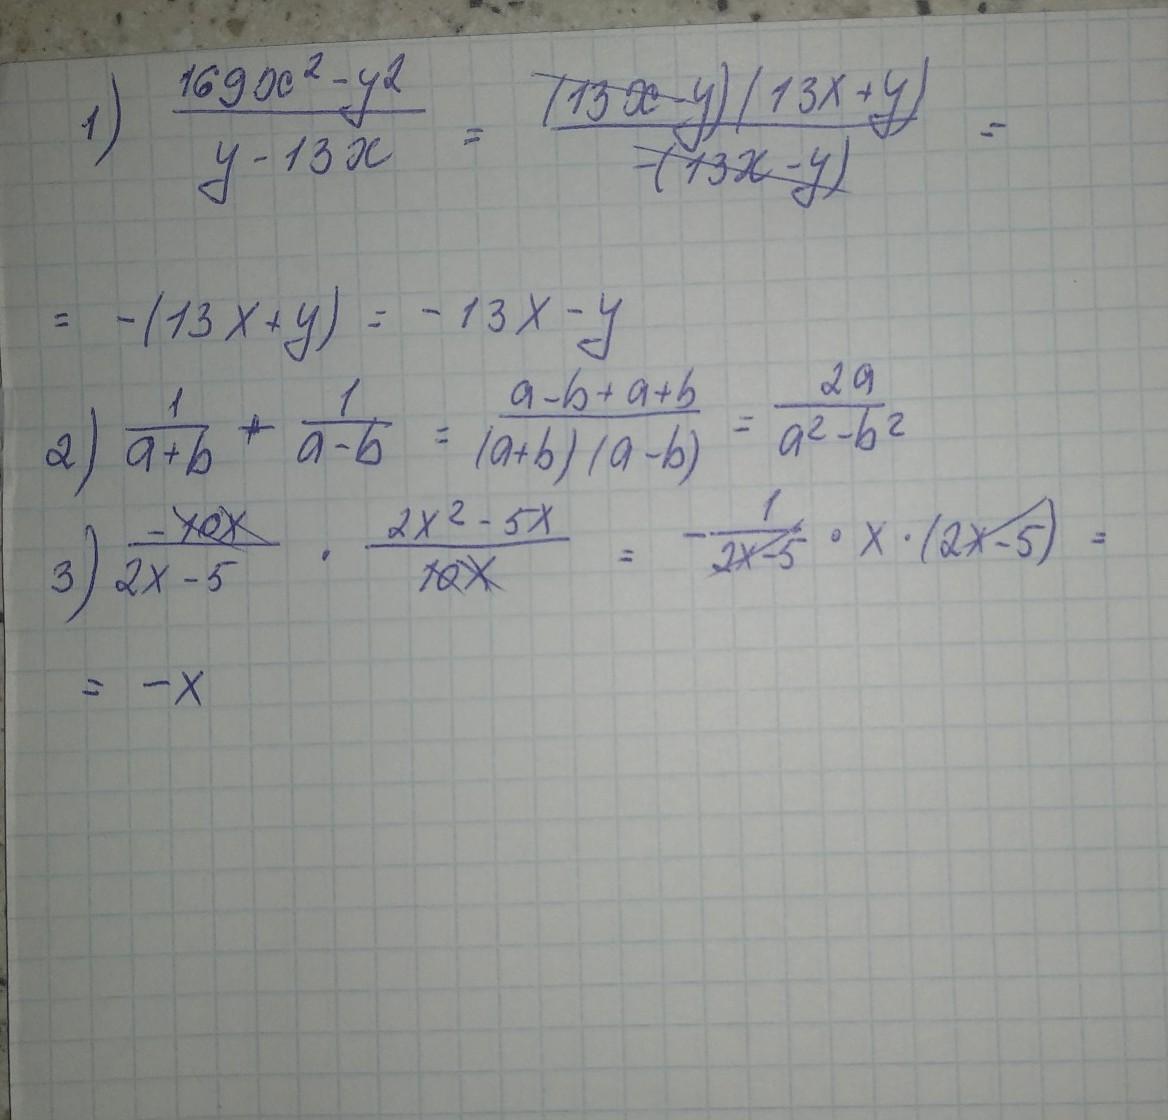 1) (169x² - y²)/(y - 13x) = ((13x - y)(13x + y))/(-(13x - y)) =
= -(13x + y) = -13x - y
2) 1/(a+b) + 1/(a-b) = (a-b+a+b)/((a+b)(a-b)) = 2a/(a²-b²)
3) (-10x)/(2x-5) · (2x²-5x)/(10x) = -1/(2x-5) · x · (2x-5) =
= -x